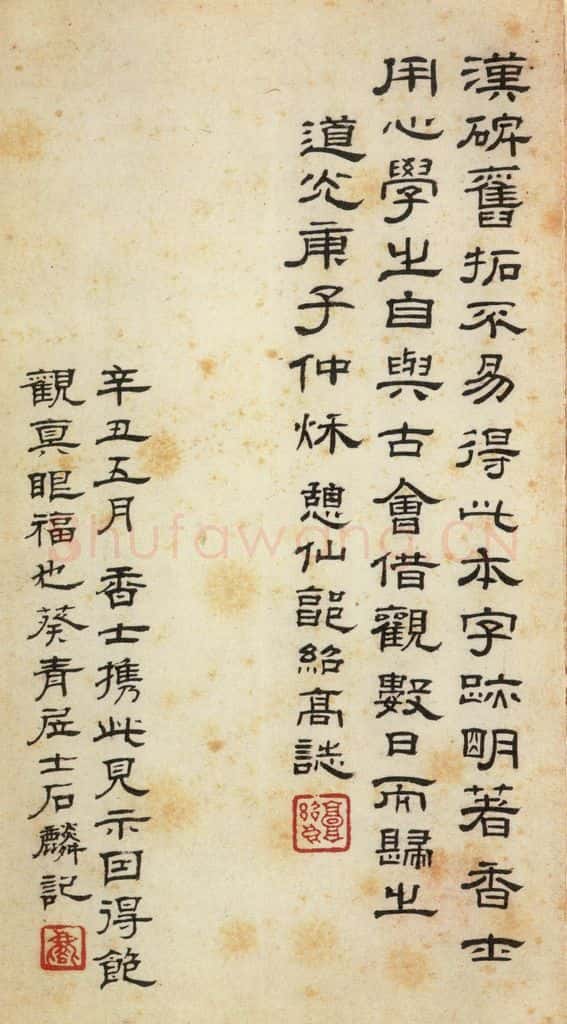 漢碑舊拓不易得此本字跡明著香士
用心學之自與古會借觀數日而歸之
道光庚子仲秋 憩仙紹高誌
辛丑五月 香士携此見示因得飽
觀真眼福也葵青居士石麟記
Shufawang.CN